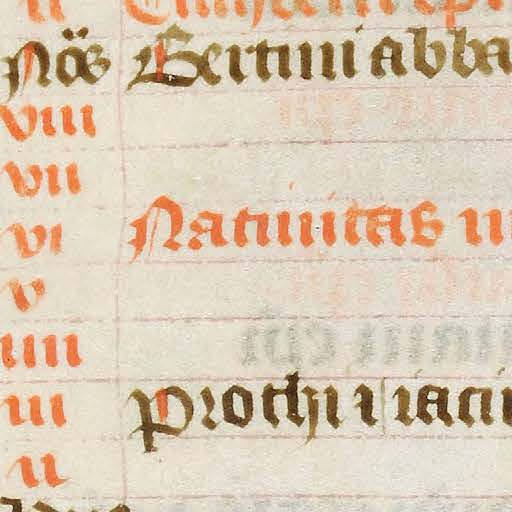 Nōs Bertini abba
viii
vii
vi Natiuitas m
v
iiii
iii Prothi ⁊ iaci
ii